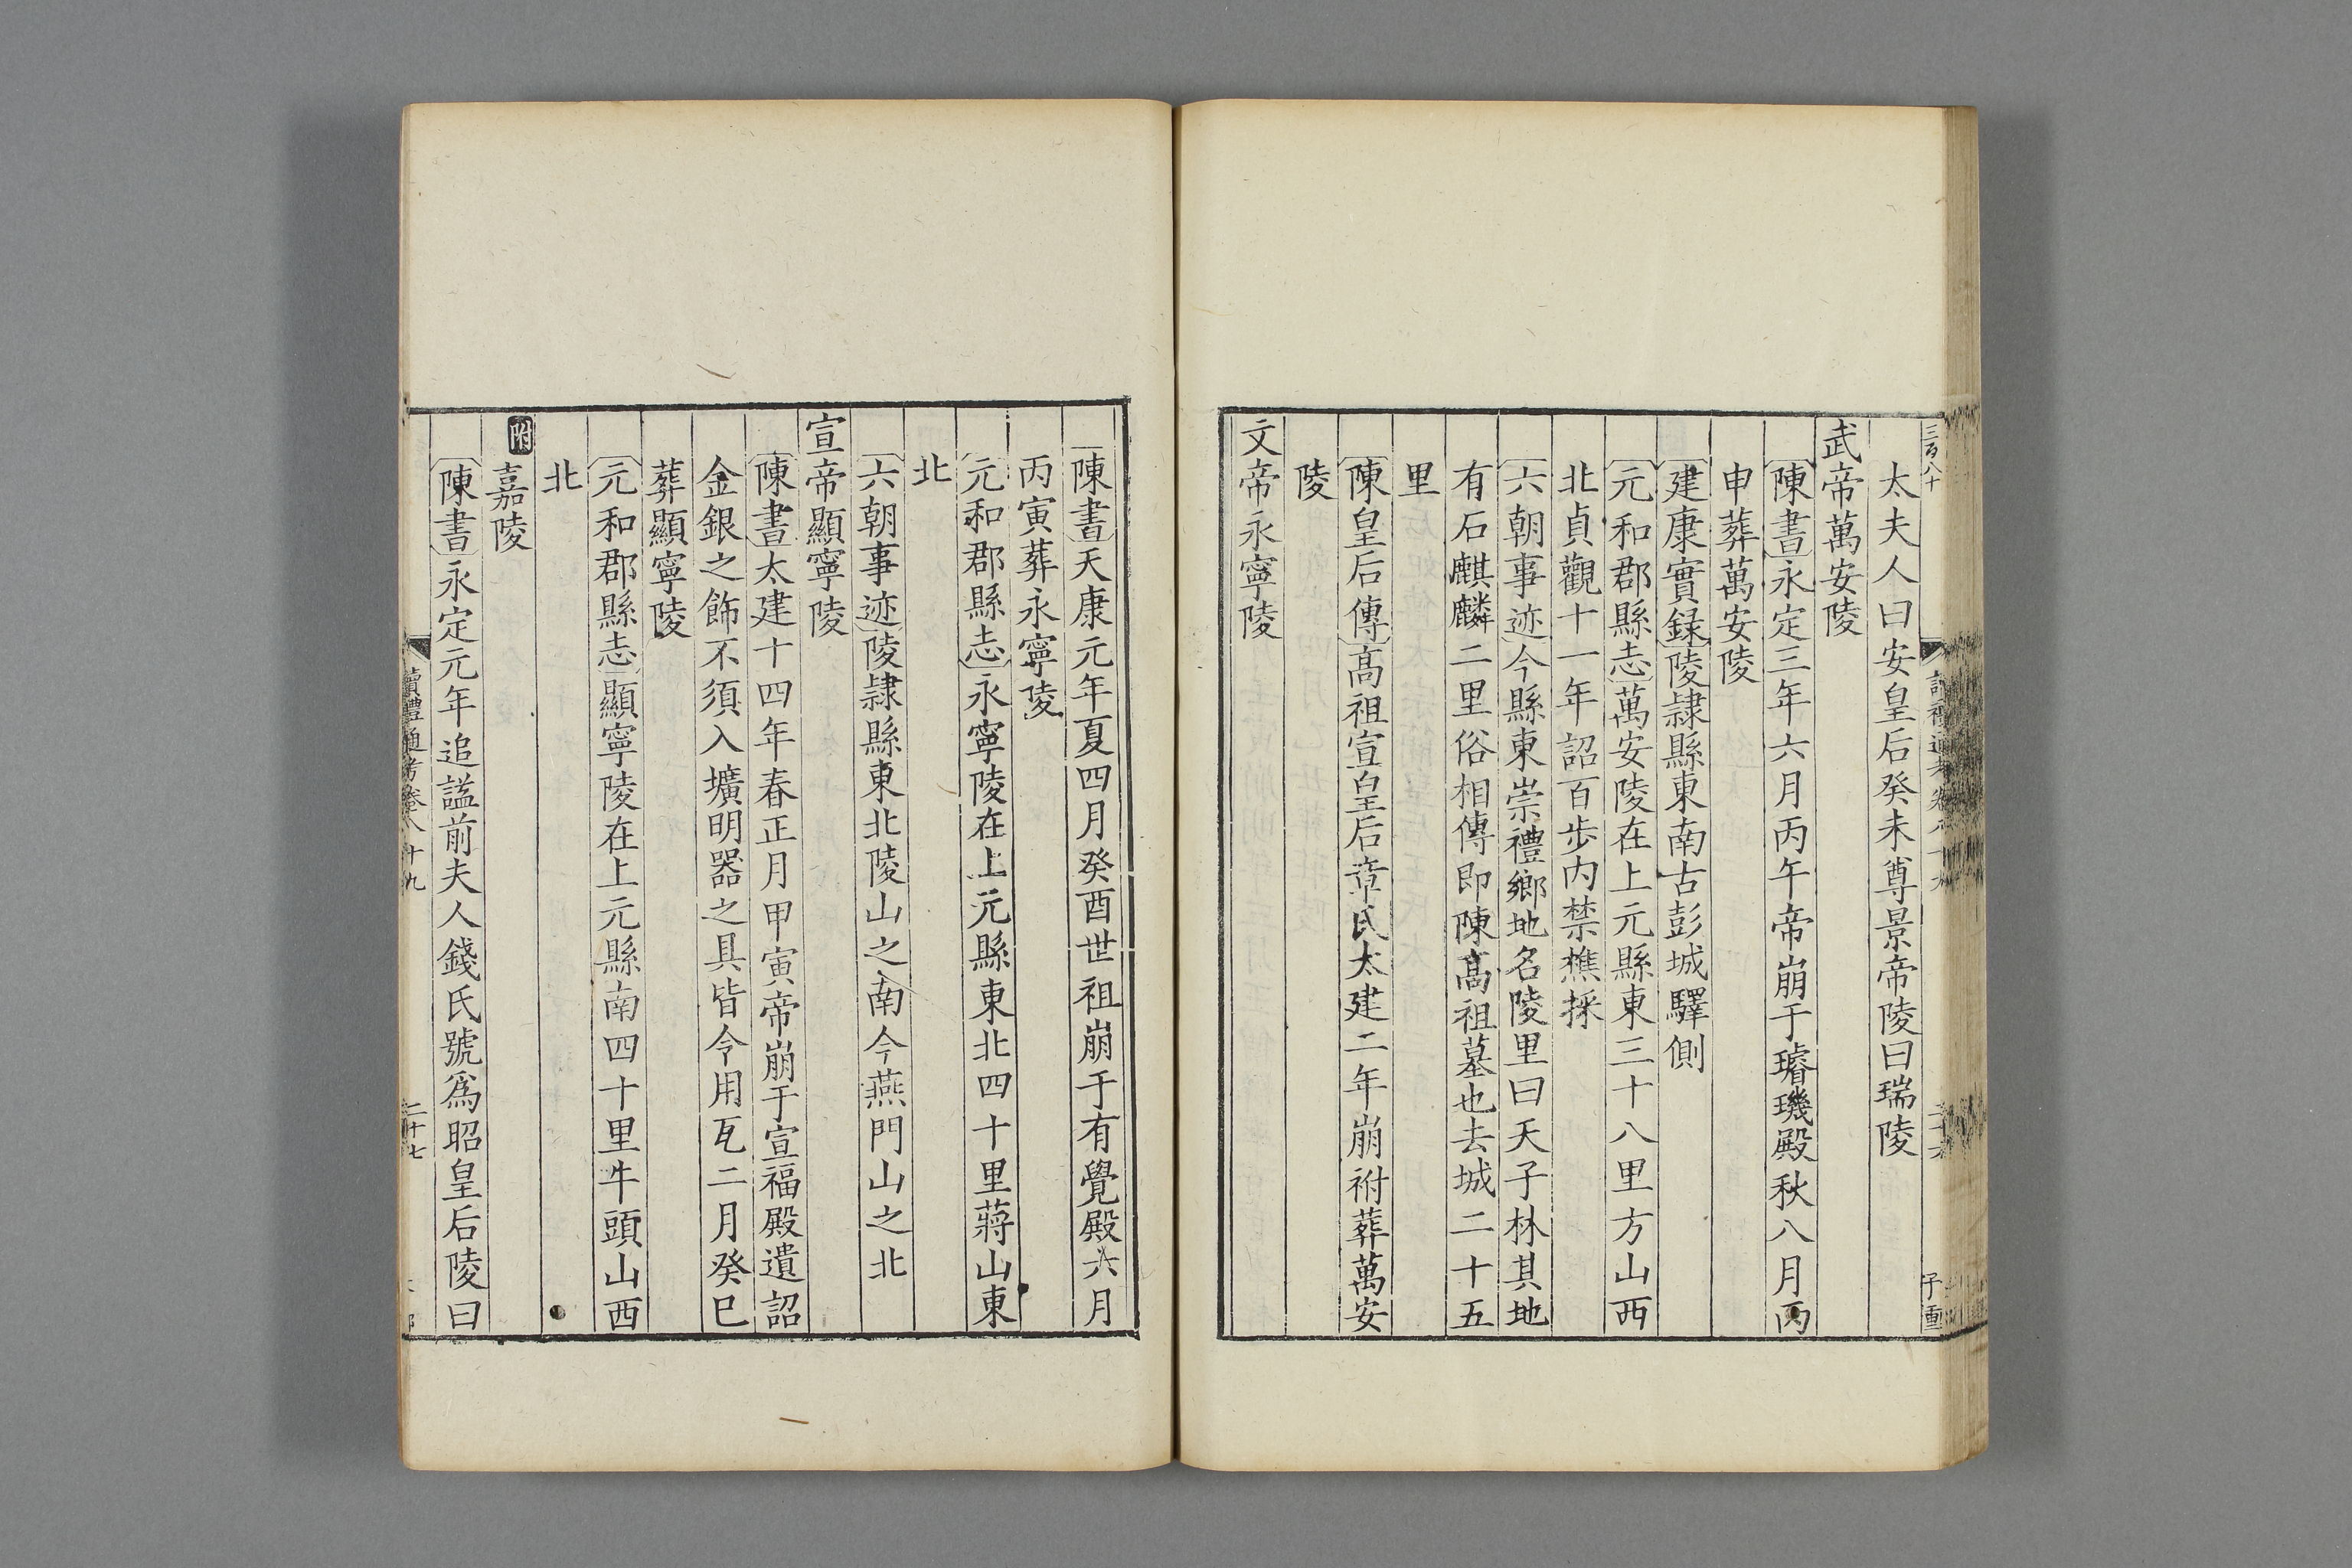 三百八十
太夫人曰安皇后癸未尊景帝陵曰瑞陵
武帝萬安陵
陳書永定三年六月丙午帝崩于璿璣殿秋八月丙
申葬萬安陵
建康實録陵隷縣東南古彭城驛側
元和郡縣志萬安陵在上元縣東三十八里方山西
北貞觀十一年詔百步内禁樵採
六朝事迹今縣東崇禮鄉地名陵里曰天子林其地
有石麒麟二里俗相傳即陳髙祖墓也去城二十五
里
陳皇后傳髙祖宣皇后章氏太建二年崩祔葬萬安
陵
文帝永寧陵
陳書天康元年夏四月癸酉世祖崩于有覺殿六月
丙寅葬永寧陵
元和郡縣志永寧陵在上元縣東北四十里蔣山東
北
六朝事迹陵隷縣東北陵山之南今燕門山之北
宣帝顯寧陵
陳書太建十四年春正月甲寅帝崩于宣福殿遺詔
金銀之飾不須入壙明器之具皆令用瓦二月癸巳
葬顯寧陵
元和郡縣志顯寧陵在上元縣南四十里牛頭山西
北
附嘉陵
陳書永定元年追謚前夫人錢氏號爲昭皇后陵曰
讀禮通考卷八十九
二十七